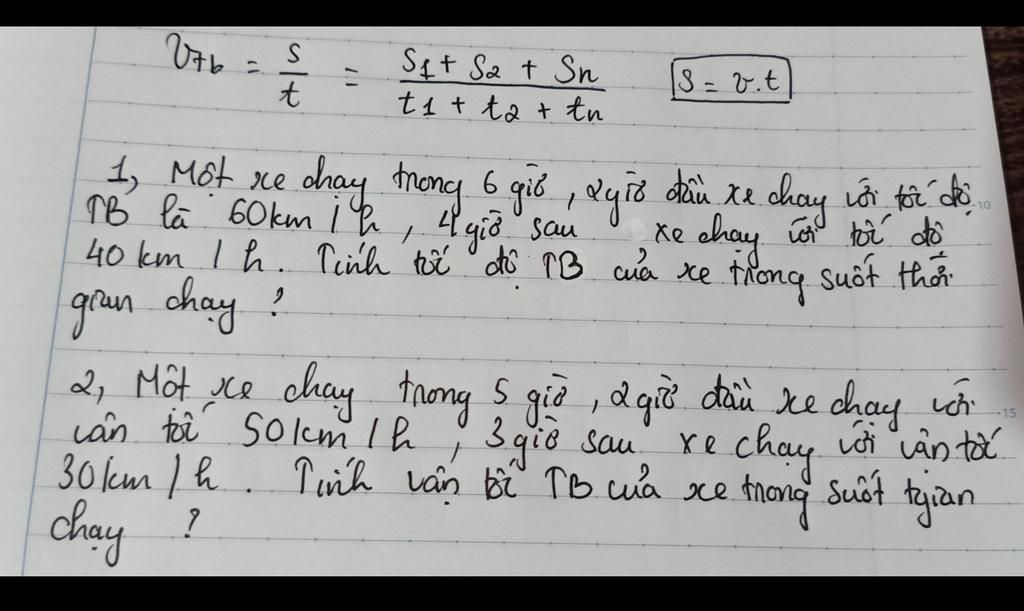 Vtb = s/t = (S1 + S2 + Sn)/(t1 + t2 + tn) S = v.t
1, Một xe chạy trong 6 giờ, 2 giờ đầu xe chạy với tốc độ
TB là 60km/h, 4 giờ sau xe chạy với tốc độ
40 km/h. Tính tốc độ TB của xe trong suốt thời
gian chạy ?
2, Một xe chạy trong 5 giờ, 2 giờ đầu xe chạy với
vận tốc 50km/h, 3 giờ sau xe chạy với vận tốc
30km/h. Tính vận tốc TB của xe trong suốt tgian
chạy ?
10
15